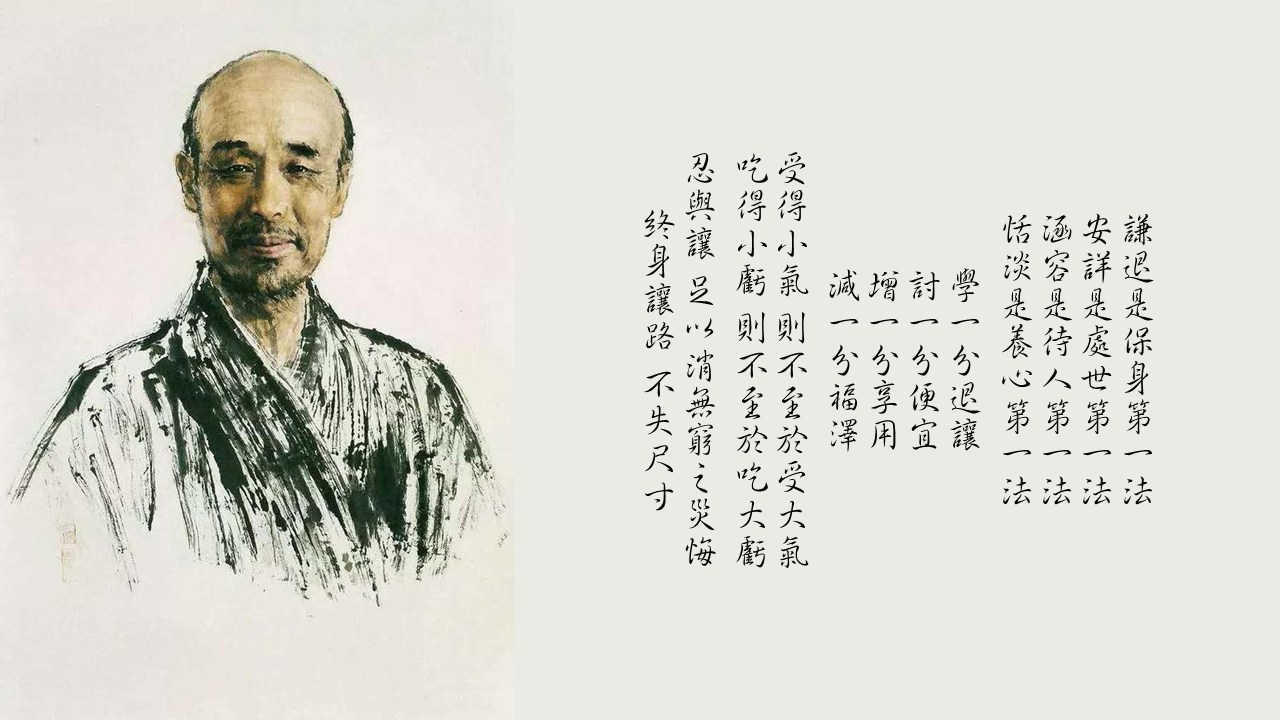 謙退是保身第一法
安詳是處世第一法
涵容是待人第一法
恬淡是養心第一法
學一分退讓
討一分便宜
增一分享用
減一分福澤
受得小氣 則不至於受大氣
吃得小虧 則不至於吃大虧
忍與讓 足以消無窮之災悔
終身讓路 不失尺寸